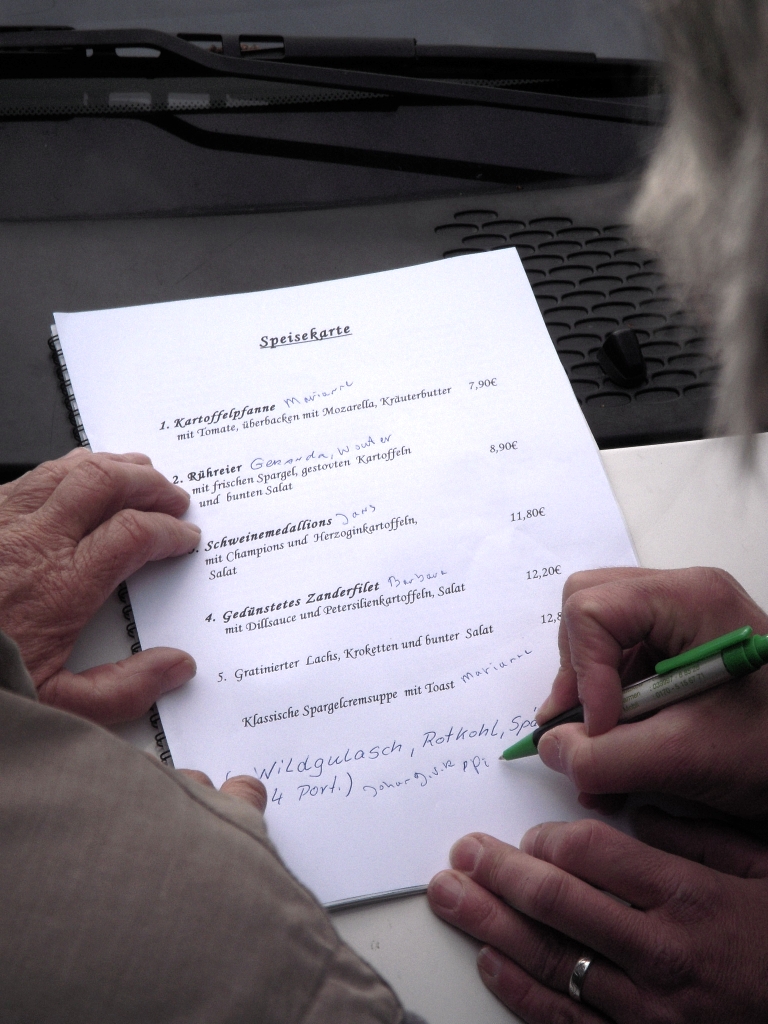 Speisekarte
1. Kartoffelpfanne Marianne 7,90€
mit Tomate, überbacken mit Mozarella, Kräuterbutter
2. Rühreier Gerarda, Wouter 8,90€
mit frischen Spargel, gestovten Kartoffeln
und bunten Salat
Schweinemedallions Jans 11,80€
mit Champions und Herzoginkartoffeln,
Salat
4. Gedünstetes Zanderfilet Barbara 12,20€
mit Dillsauce und Petersilienkartoffeln, Salat
5. Gratinierter Lachs, Kroketten und bunter Salat 12,8
Klassische Spargelcremsuppe mit Toast Marianne
Wildgulasch, Rotkohl, Spä
4 Port.)